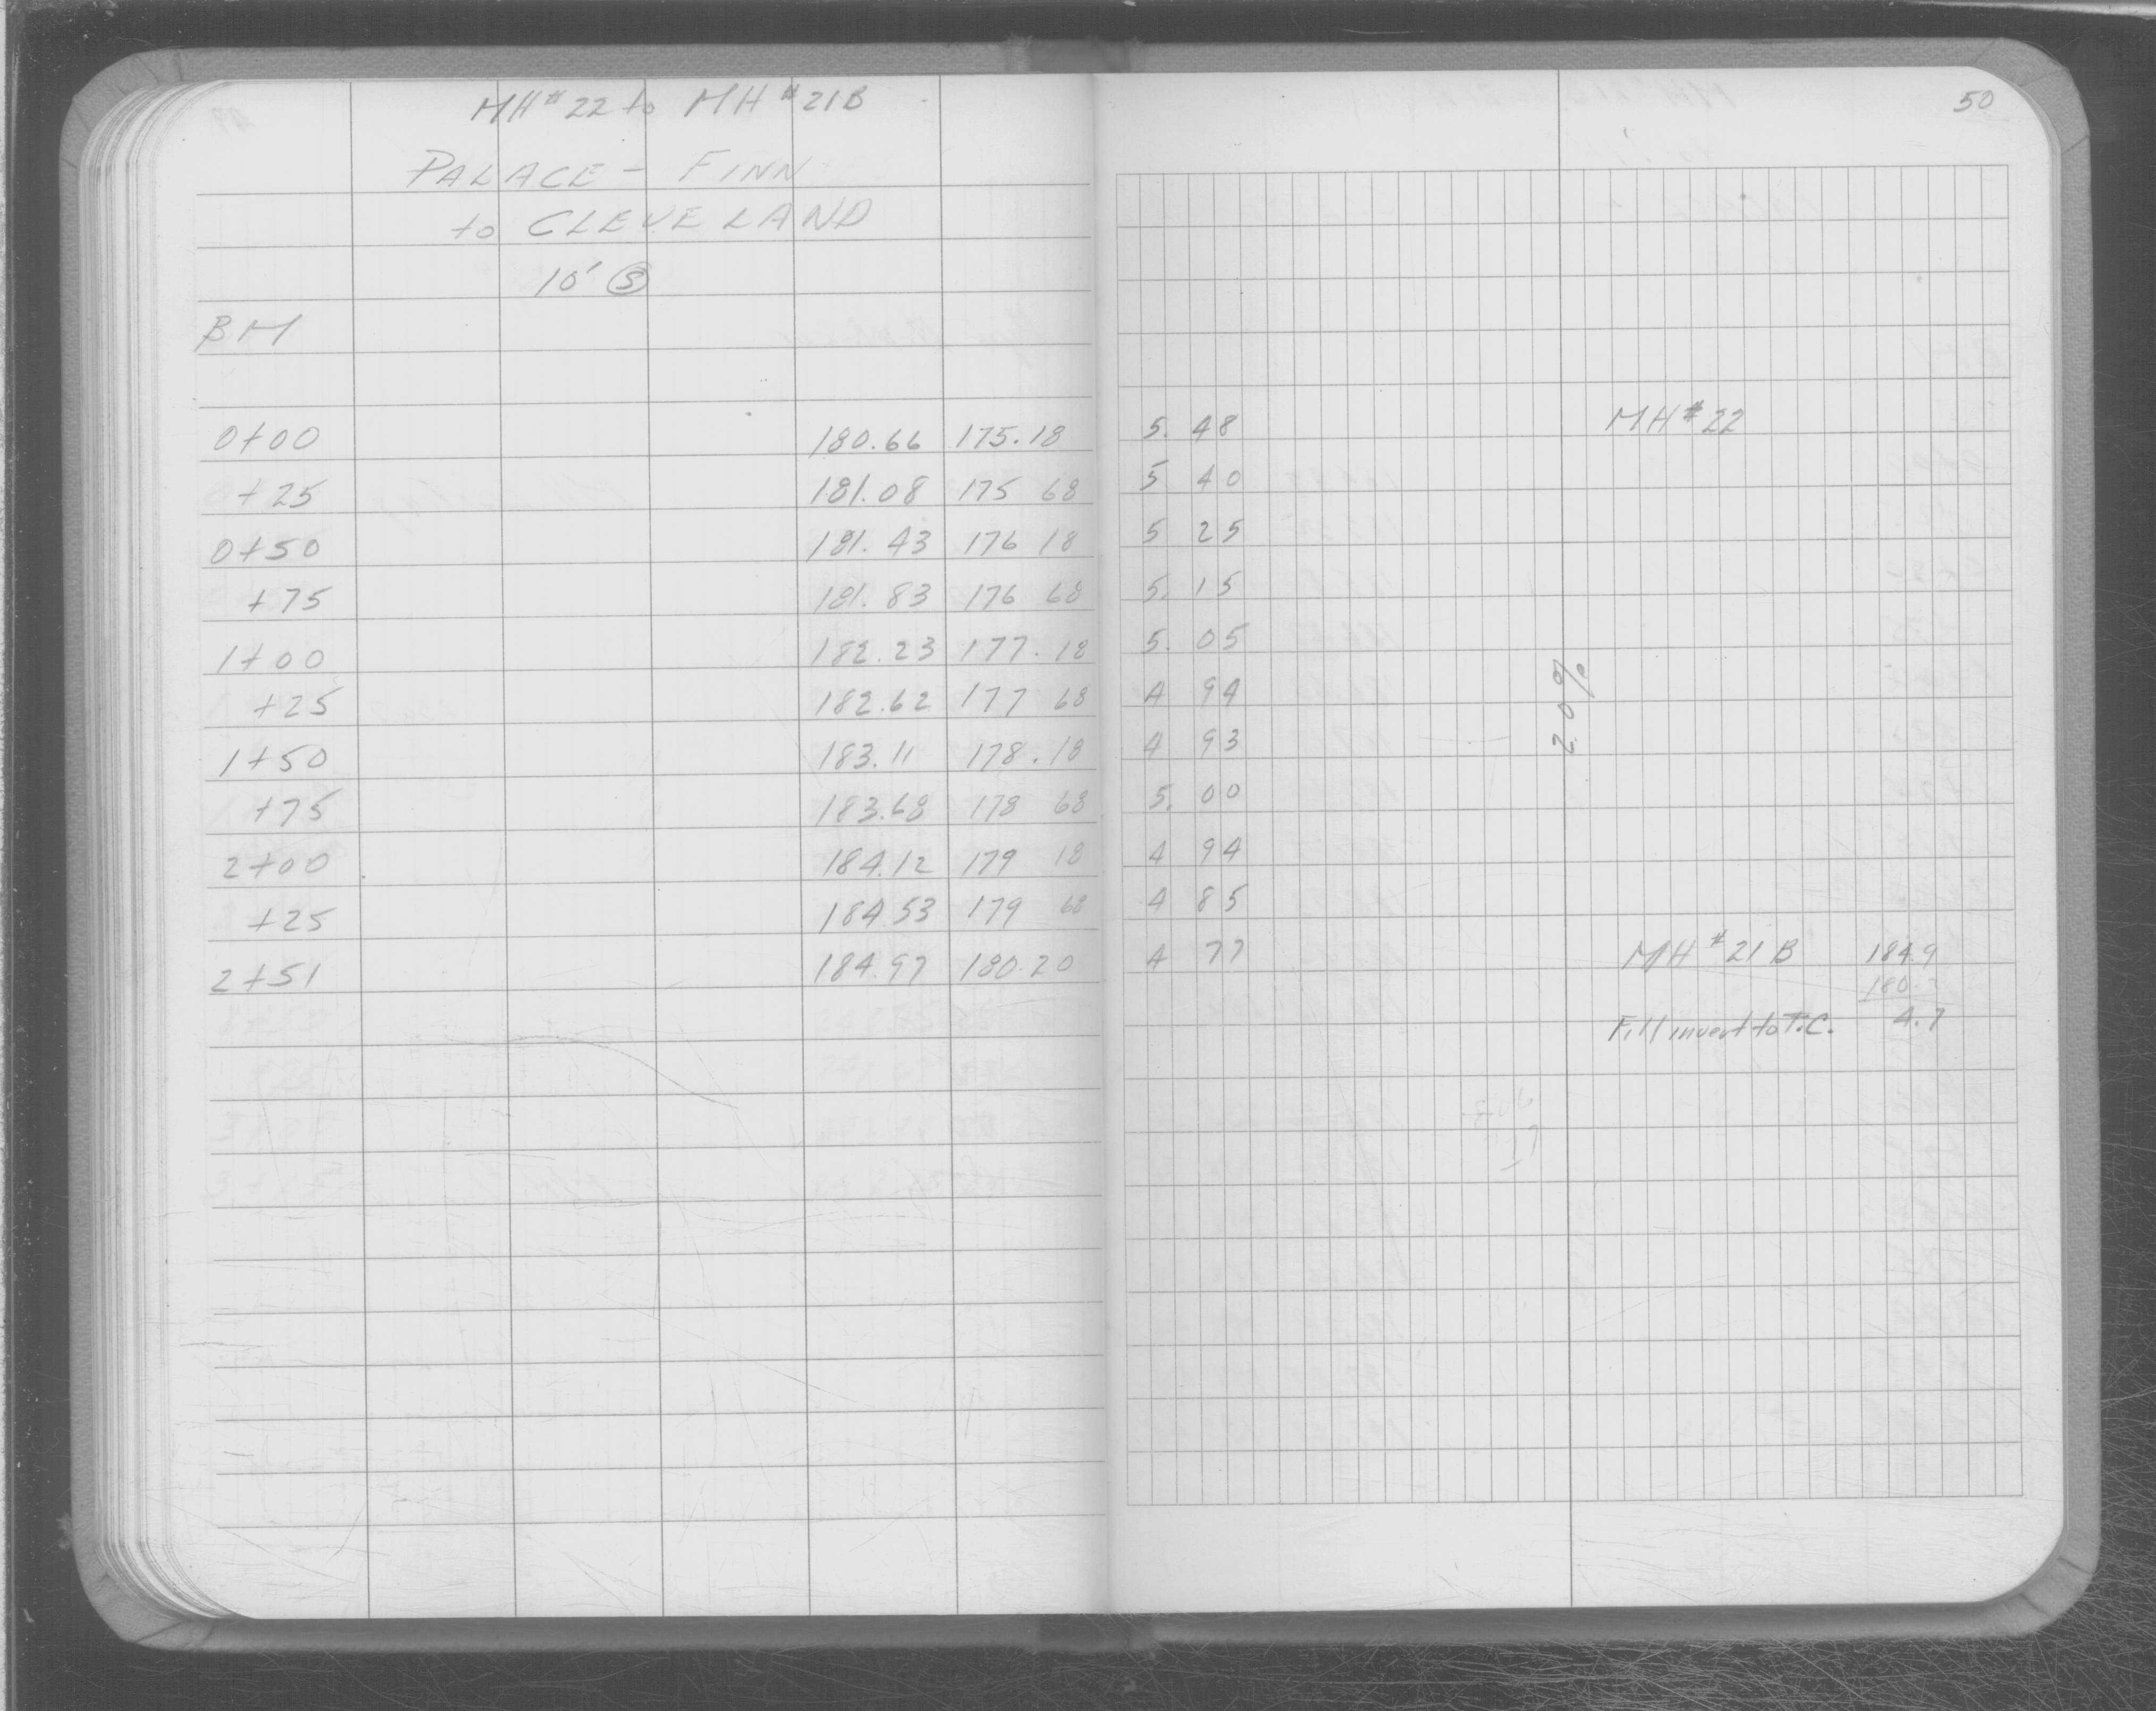 MH #22 to MH #21B
50
PALACE - FINN
to CLEVELAND
10' Ⓢ
BM
0+00 180.66 175.18 5.48 MH #22
+25 181.08 175 68 5 40
0+50 181.43 176 18 5 25
+75 181.83 176 68 5.15
1+00 182.23 177.18 5.05
+25 182.62 177 68 4 94
2.0%
1+50 183.11 178.18 4 93
+75 183.68 178 68 5.00
2+00 184.12 179 18 4 94
+25 184.53 179 68 4 85
2+51 184.97 180.20 4 77 MH #21B 184.9
180.
Fill invert to T.C. 4.7